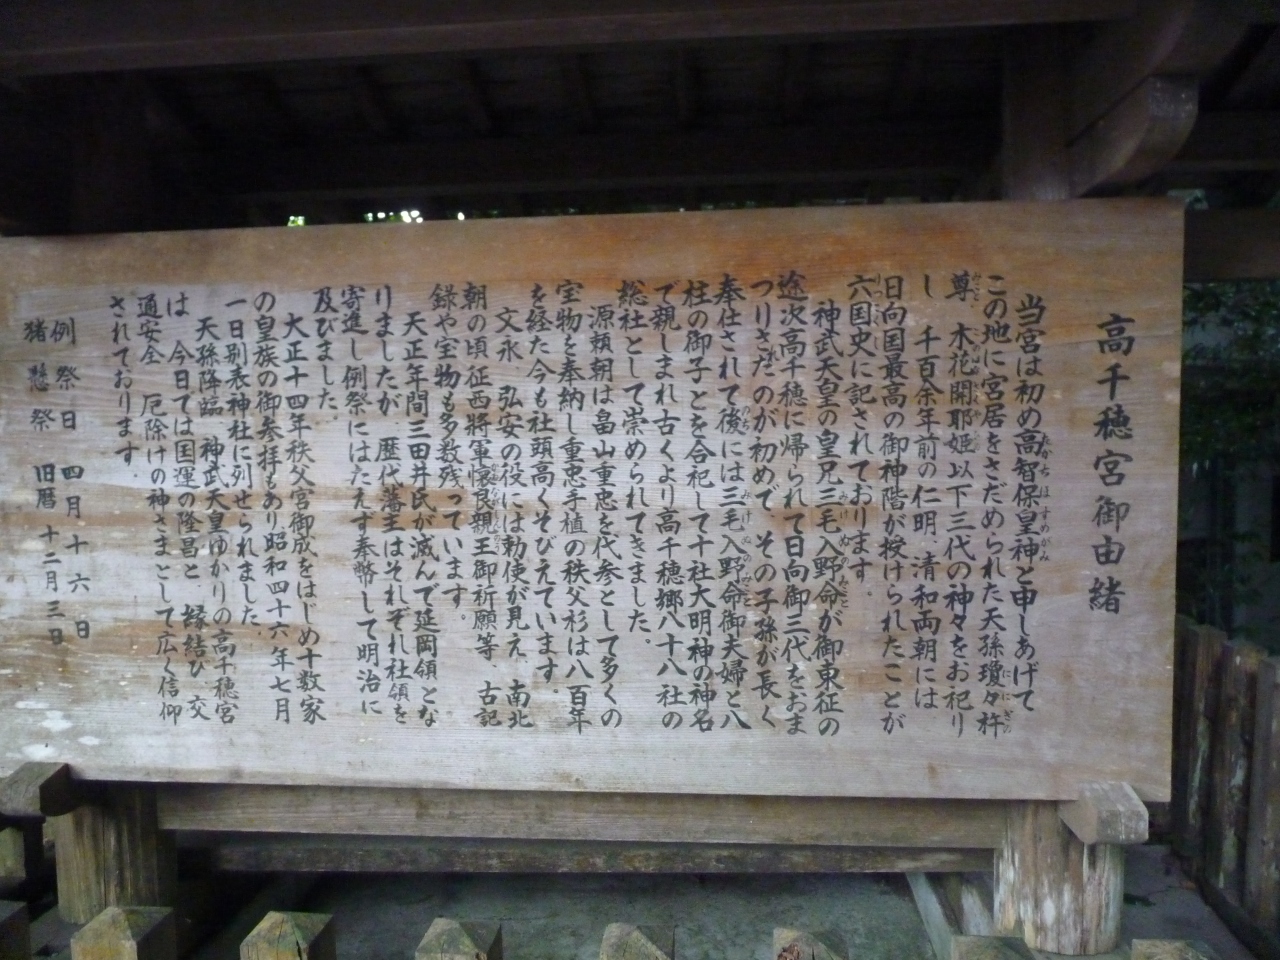 高千穂宮御由緒
当宮は初め高智保皇神と申しあげて
この地に宮居をさだめられた天孫瓊々杵
尊 木花開耶姫以下三代の神々をお祀り
し 千百余年前の仁明 清和両朝には
日向国最高の御神階が授けられたことが
六国史に記されております。
神武天皇の皇兄三毛入野命が御東征の
途次高千穂に帰られて日向御三代をおま
つりされたのが初めで その子孫が長く
奉仕されて後には三毛入野命御夫婦と八
柱の御子とを合祀して十社大明神の神名
で親しまれ古くより高千穂郷八十八社の
総社として崇められてきました。
源頼朝は畠山重忠を代参として多くの
宝物を奉納し重忠手植の秩父杉は八百年
を経た今も社頭高くそびえています。
文永、弘安の役には勅使が見え、南北
朝の頃征西将軍懐良親王御祈願等、古記
録や宝物も多数残っています。
天正年間三田井氏が滅んで延岡領とな
りましたが、歴代藩主はそれぞれ社領を
寄進し例祭にはたえず奉幣して明治に
及びました。
大正十四年秩父宮御成をはじめ十数家
の皇族の御参拝もあり昭和四十六年七月
一日別表神社に列せられました。
天孫降臨、神武天皇ゆかりの高千穂宮
は 今日では国運の隆昌と、縁結び、交
通安全 厄除けの神さまとして広く信仰
されております。
例祭日 四月十六日
猪懸祭 旧暦 十二月三日